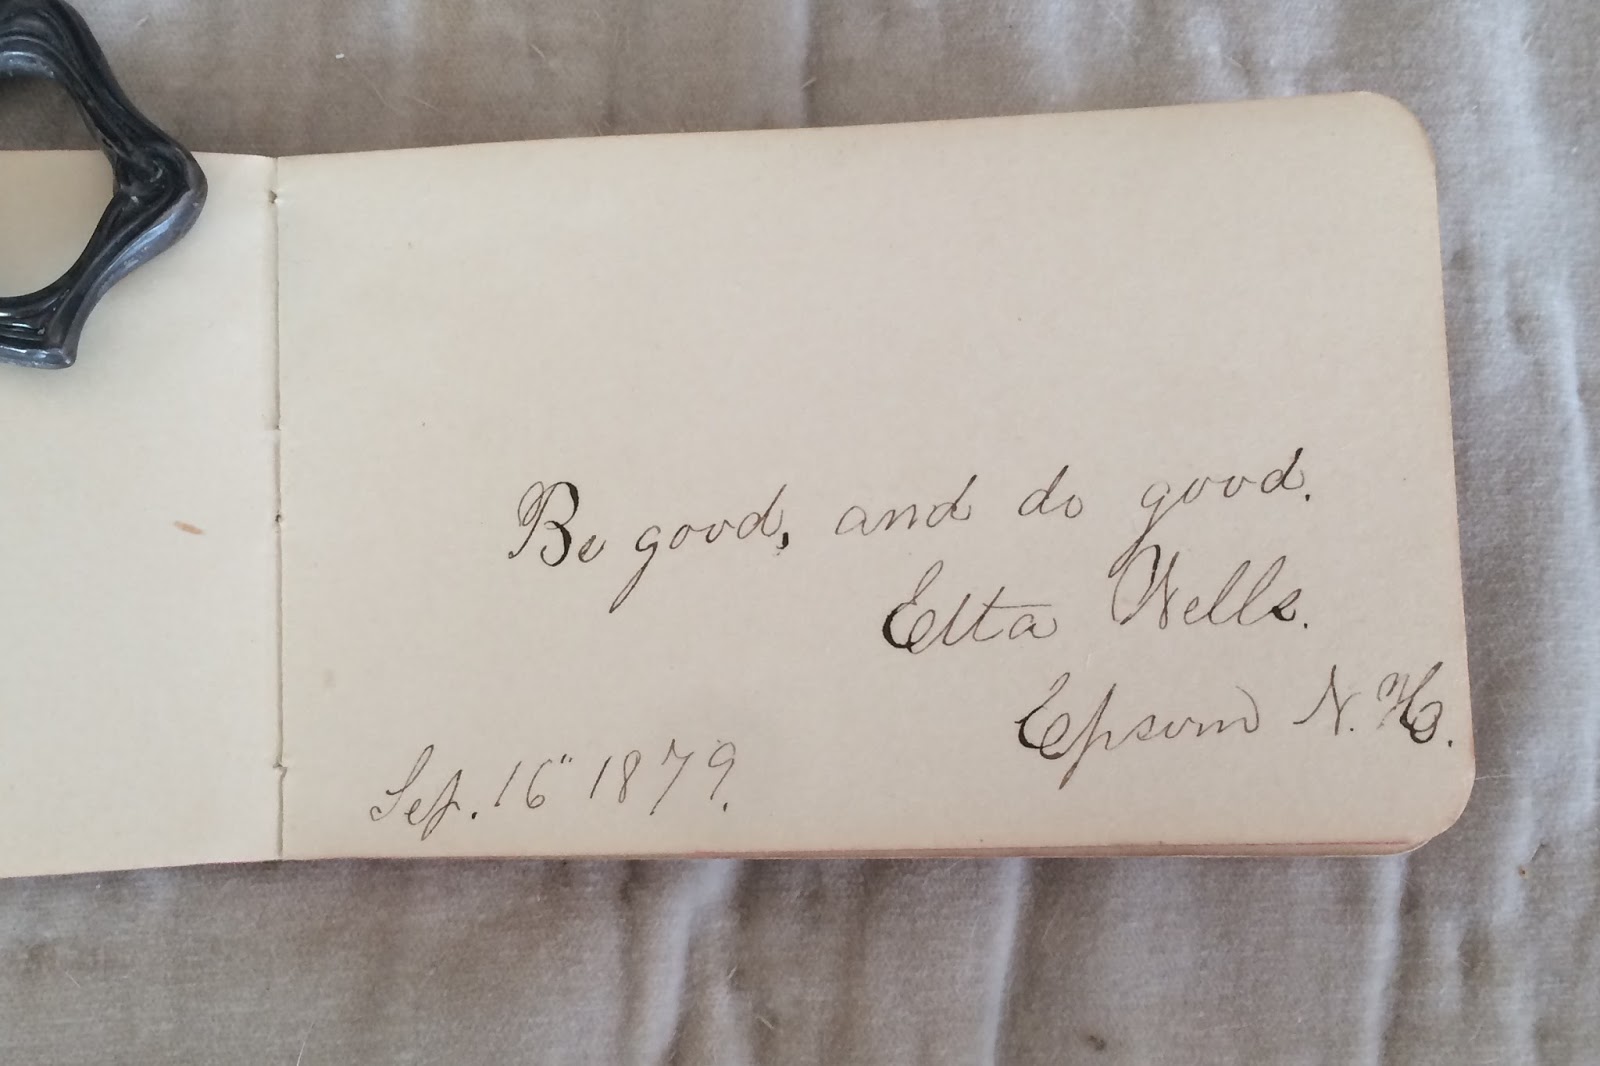 Be good, and do good.
Etta Wells.
Epsom N. H.
Sep. 16" 1879.